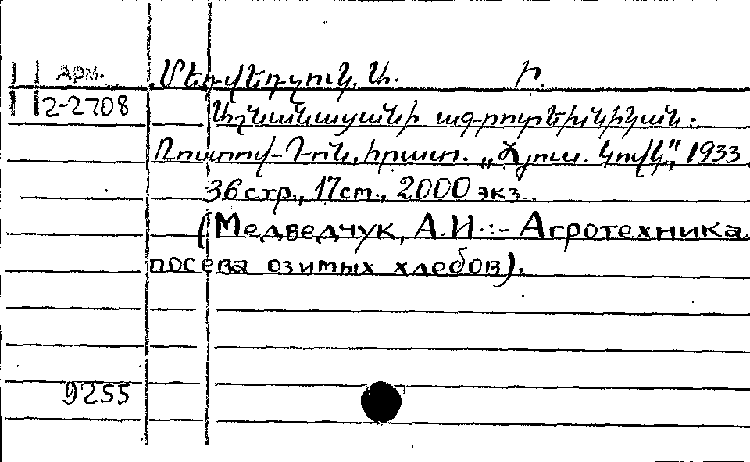 Арм. Մեդվեդչուկ, Ա. Ի.
2-2708 Աշնանացանի ագրոտեխնիկան.
Ռոստով-Դոն, հրատ. „Հյուս. Կովկ", 1933
36 стр., 17 см., 2000 экз.
(Медведчук, А.И.:- Агротехника
посева озимых хлебов).
9255